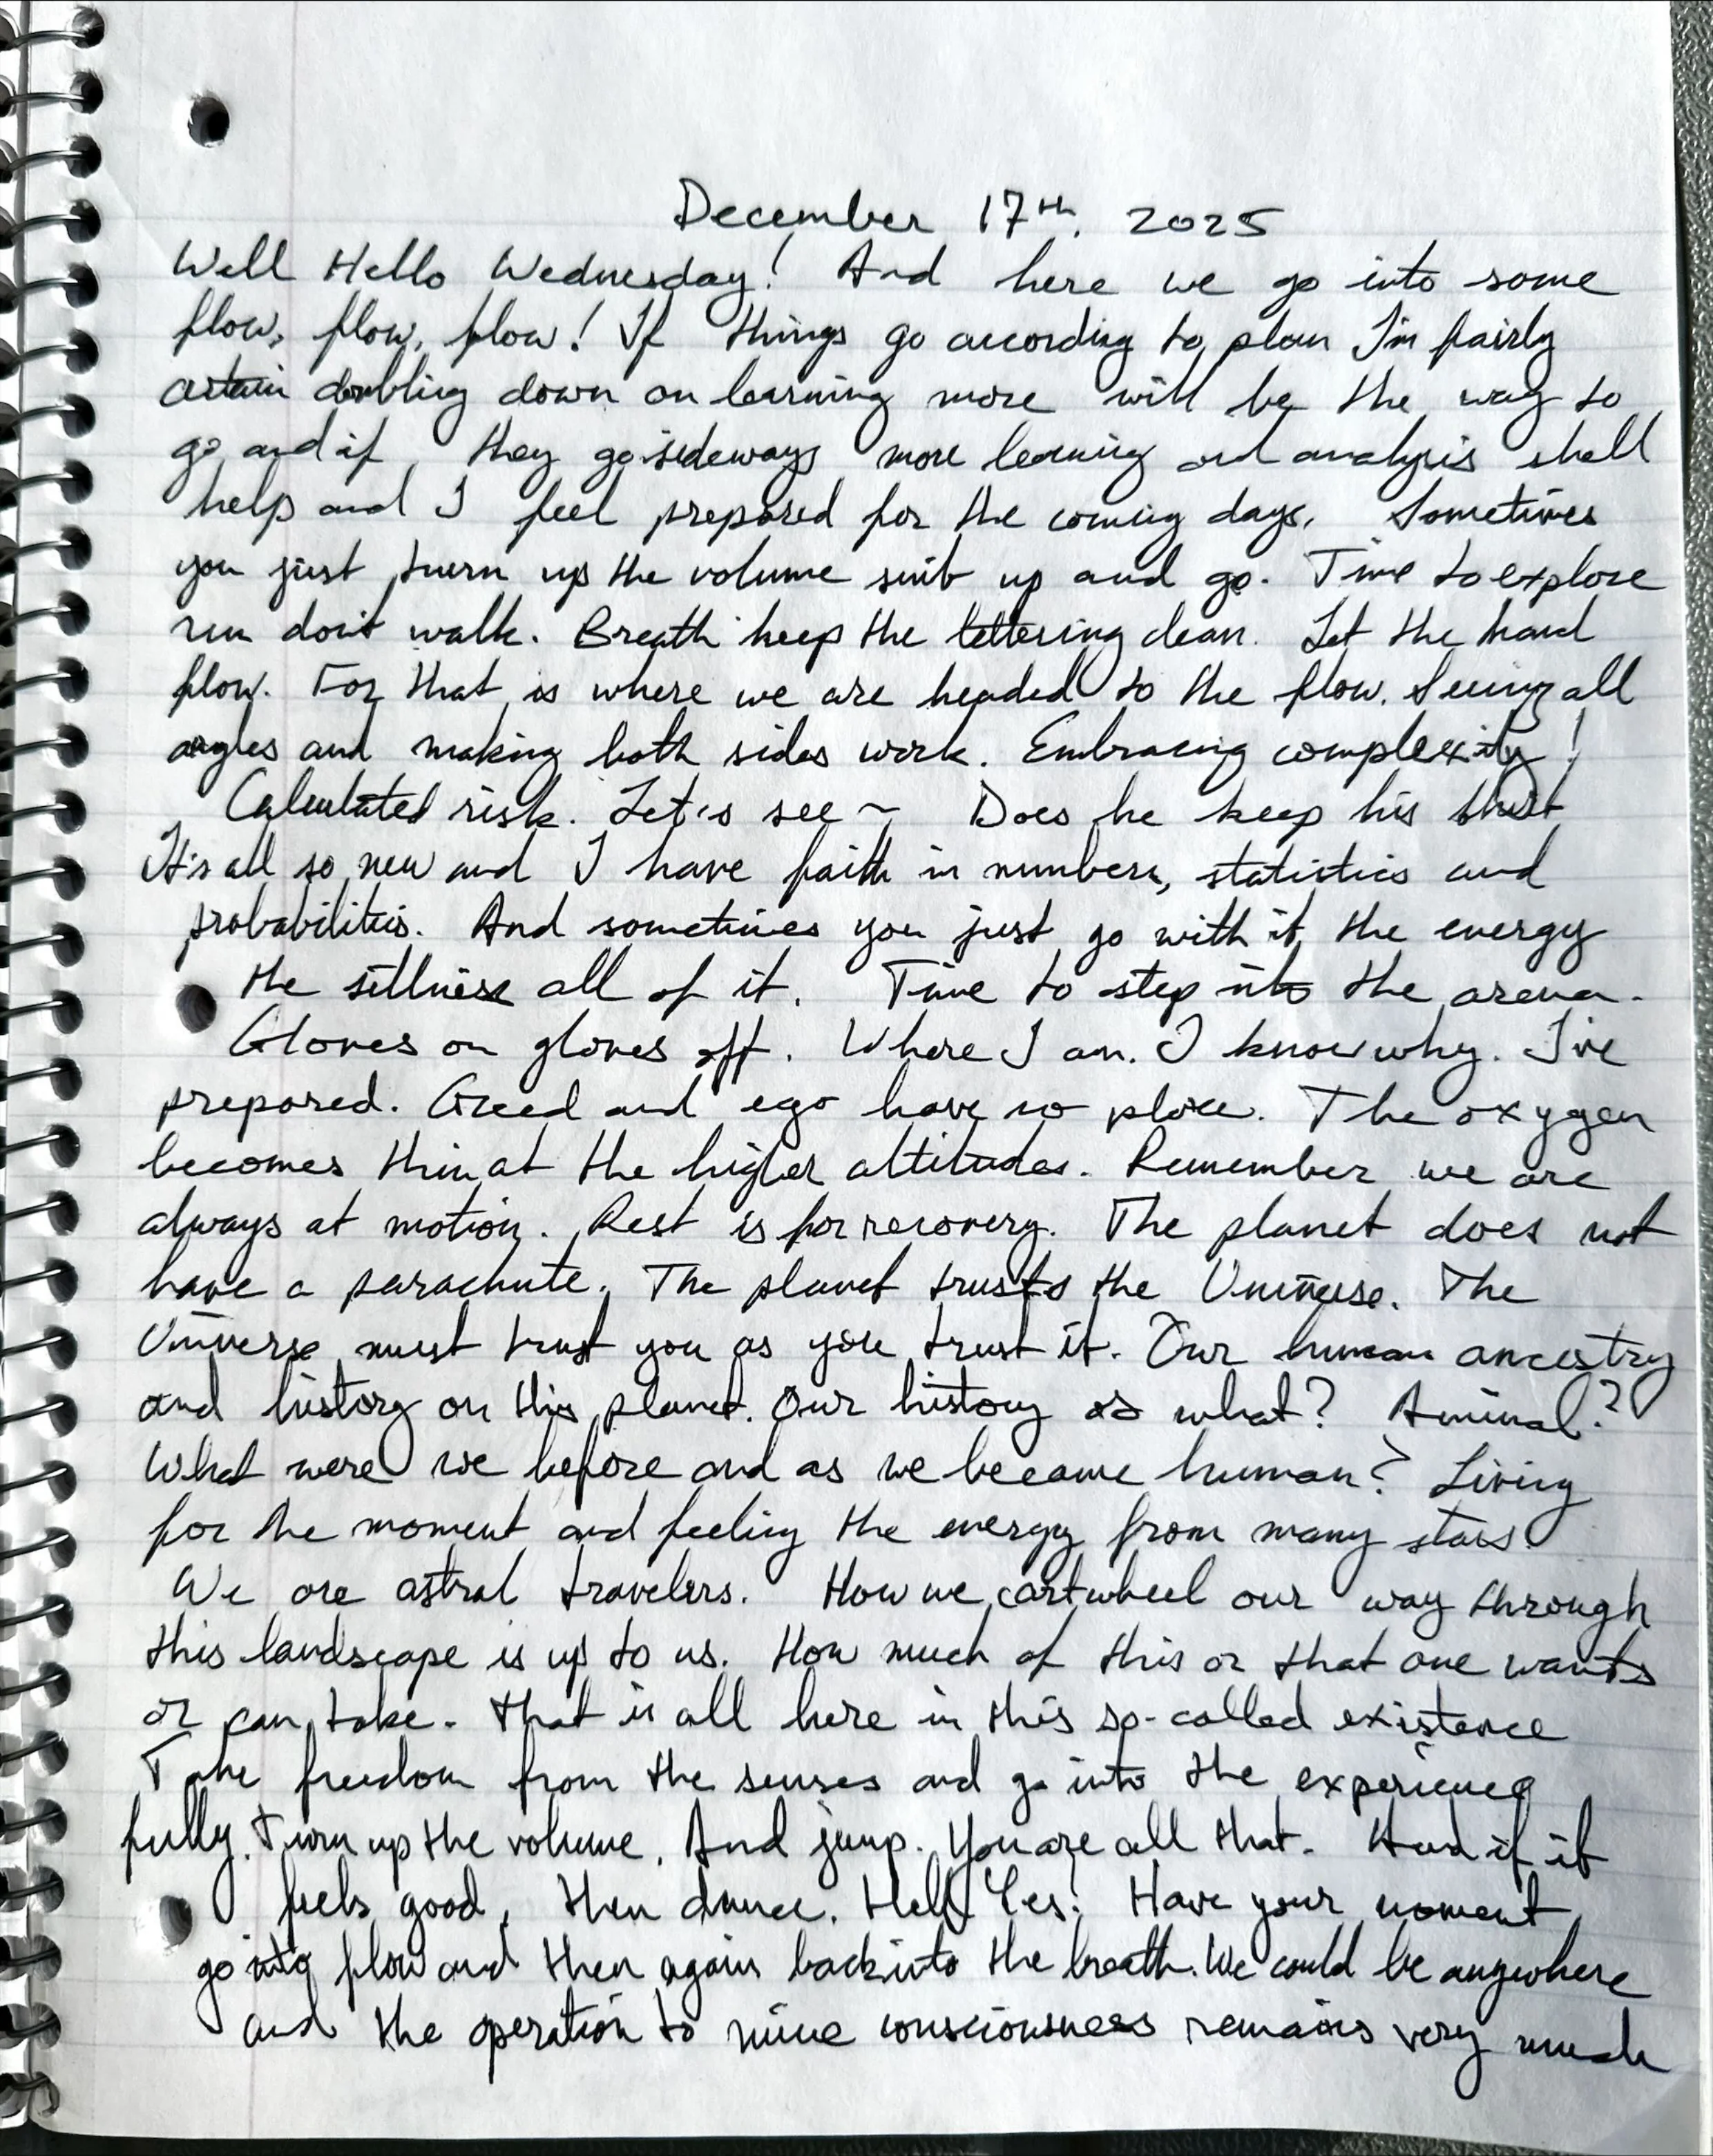 December 17th, 2025
Well Hello Wednesday! And here we go into some
flow, flow, flow! If things go according to plan I'm fairly
certain doubling down on learning more will be the way to
go and if they go sideways more learning and analysis shall
help and I feel prepared for the coming days. Sometimes
you just turn up the volume suit up and go. Time to explore
run don't walk. Breath keep the lettering clean. Let the hand
flow. For that is where we are headed to the flow. Seeing all
angles and making both sides work. Embracing complexity!
Calculated risk. Let's see ~ Does he keep his shirt
It's all so new and I have faith in numbers, statistics and
probabilities. And sometimes you just go with it the energy
the silliness all of it. Time to step into the arena.
Gloves on gloves off. Where I am. I know why. I've
prepared. Greed and ego have no place. The oxygen
becomes thin at the higher altitudes. Remember we are
always at motion. Rest is for recovery. The planet does not
have a parachute. The planet trusts the Universe. The
Universe must trust you as you trust it. Our human ancestry
and history on this planet. Our history as what? Aminal?
What were we before and as we became human? Living
for the moment and feeling the energy from many stars.
We are astral travelers. How we cartwheel our way through
this landscape is up to us. How much of this or that one wants
or can take. That is all here in this so-called existence
Take freedom from the senses and go into the experience
fully. Turn up the volume. And jump. You are all that. And if it
feels good, then dance. Hell Yes! Have your moment
go into flow and then again back into the breath. We could be anywhere
and the operation to mine consciousness remains very much